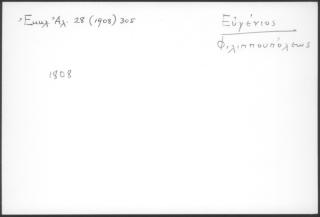 Ἐκκλ Ἀλ. 28 (1908) 305
Εὐγένιος
Φιλιππουπόλεως
1808